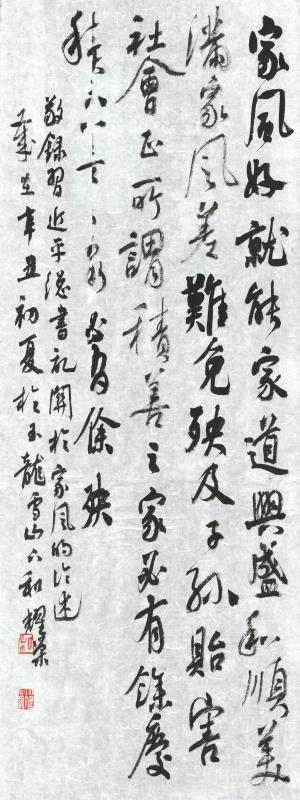 家风好就能家道興盛和順美
满家风差難免殃及子孙貽害
社會正所謂積善之家必有餘慶
积不善之家必有餘殃
敬録習近平總書記關於家风的论述
歲在辛丑初夏於玉龍雪山下和耀荣